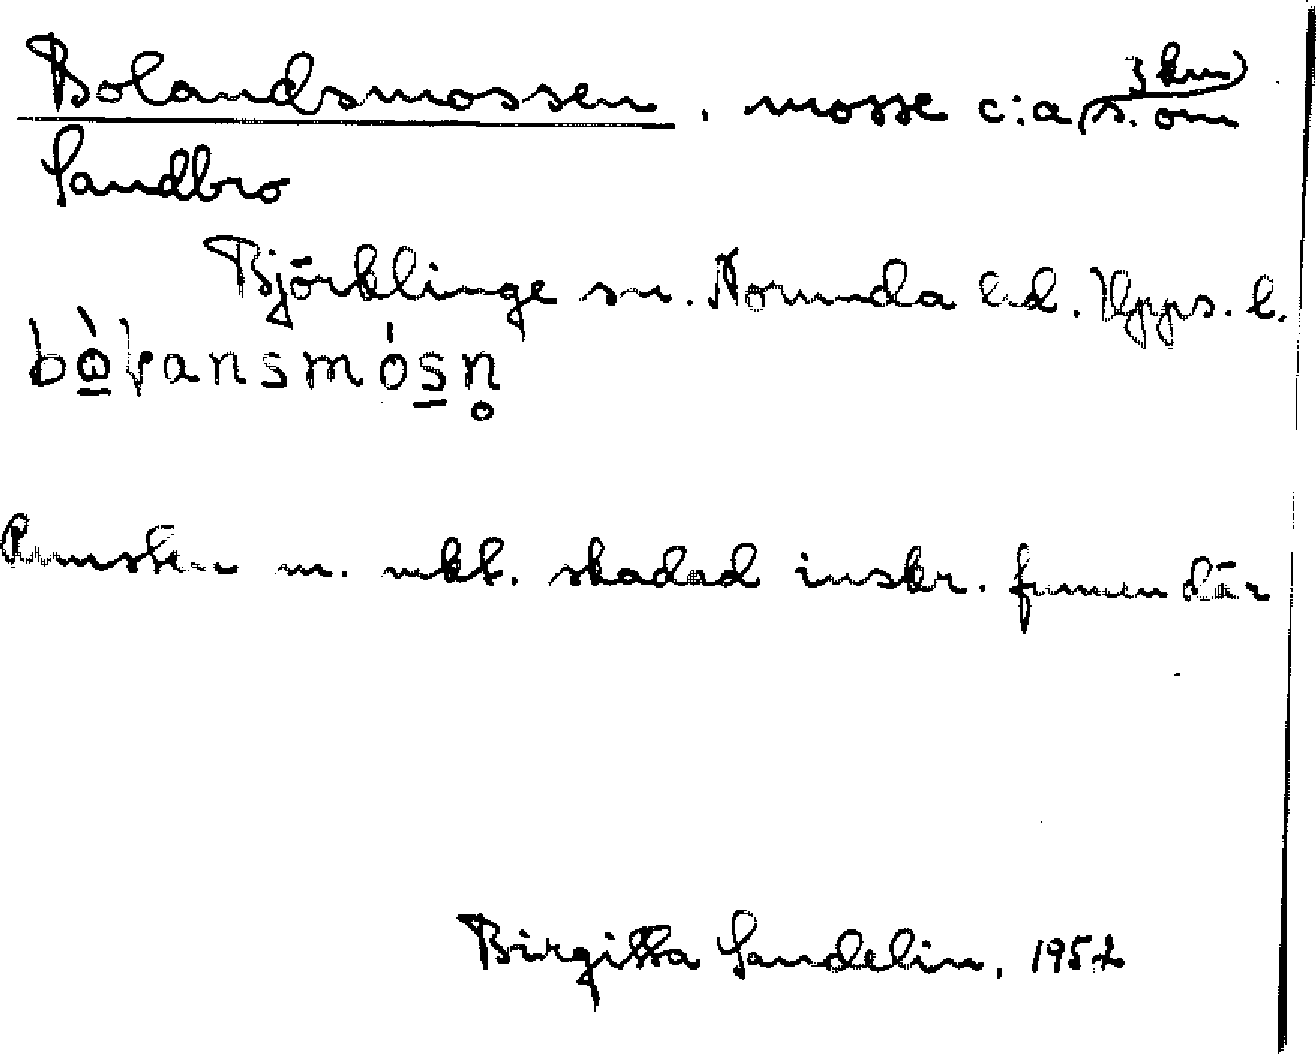 Bolandsmossen, mosse c:a 3 km s. om
Sandbro
Björklinge sn. Norunda hd. Upps. l.
bò̱ɽansmós̱n̥
Runsten m. mkt. skadad inskr. funnen där
Birgitta Sandelin, 1952